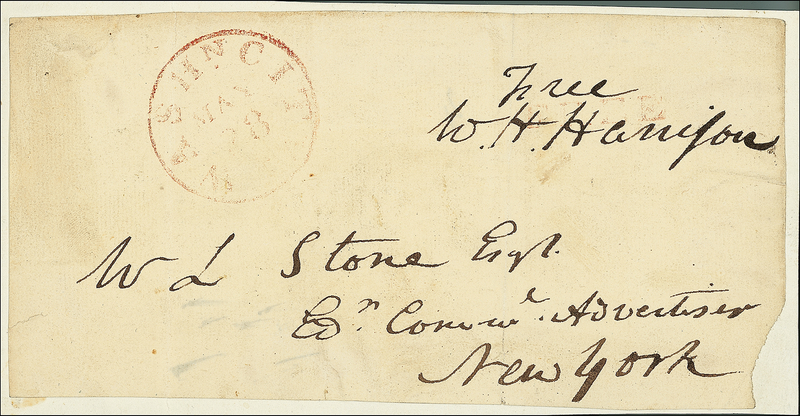 WASHN CIT
MAY
28
Free
FREE
W. H. Harrison
W L Stone Esqr.
Edr. Commel. Advertiser
New York